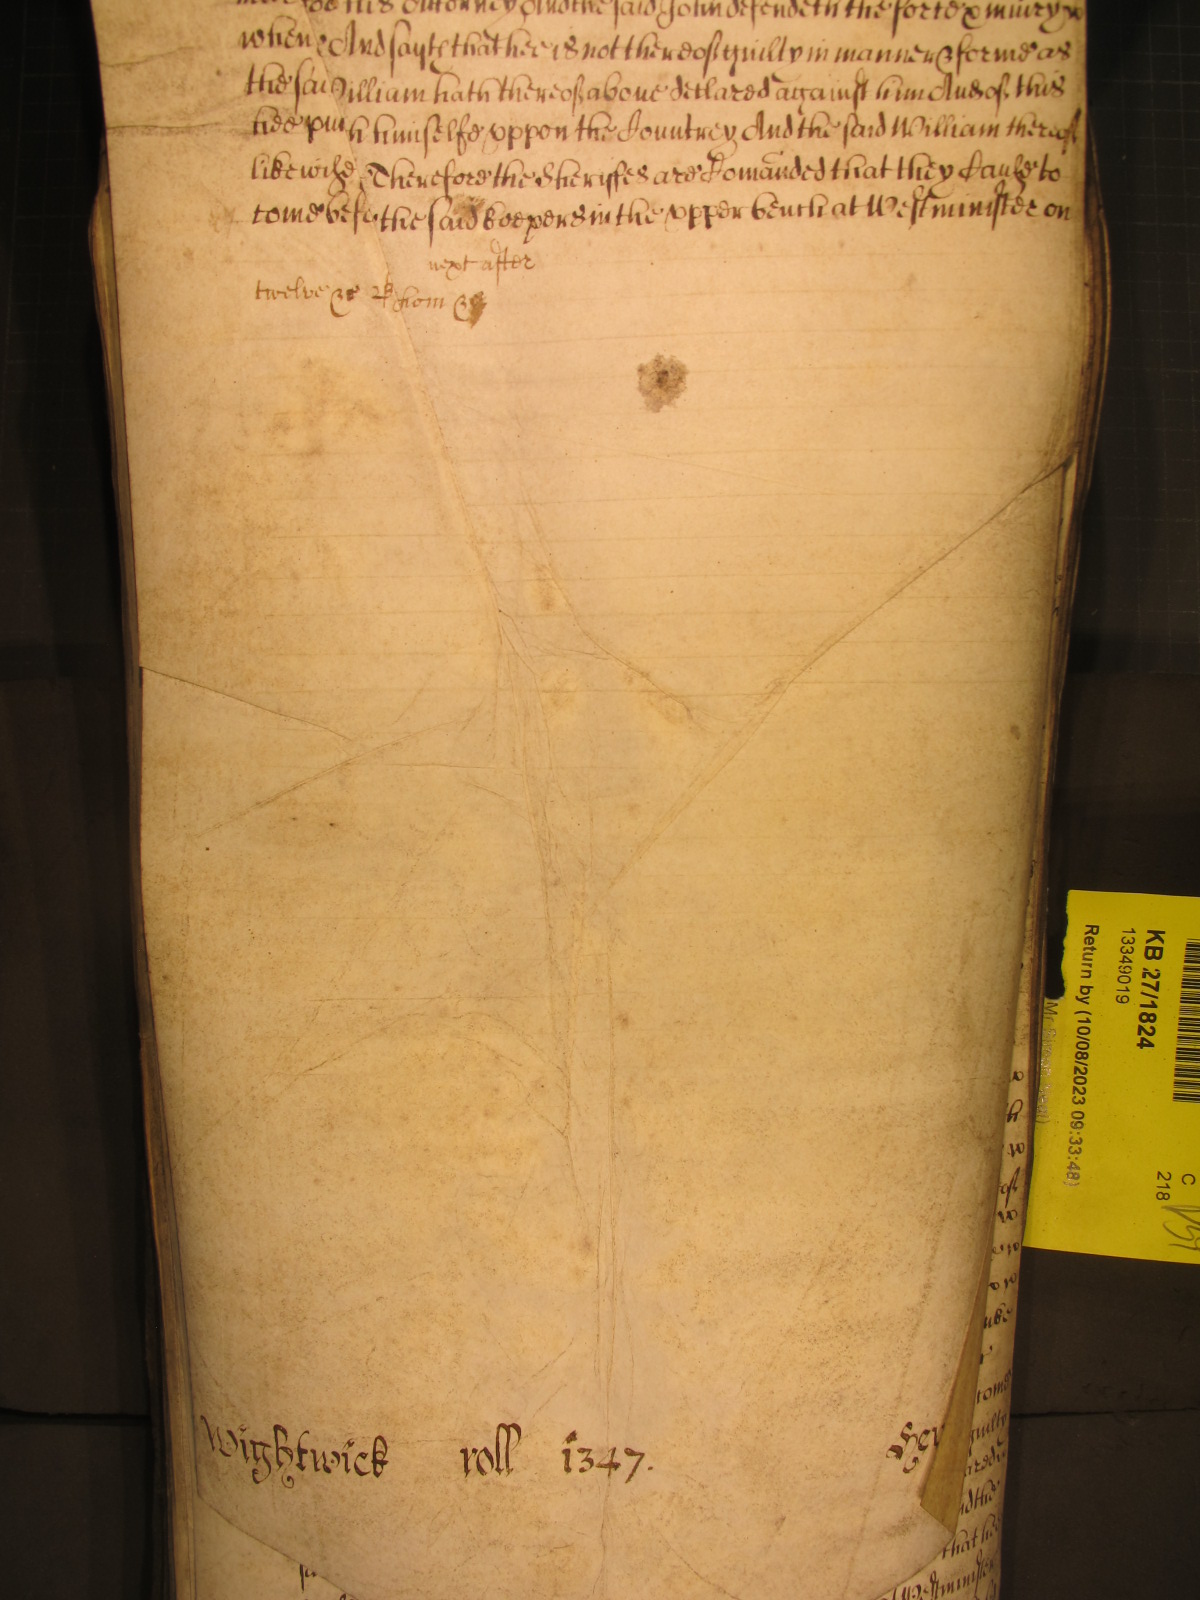 his Attorney And the said John defendeth the force & iniury
when &c And sayth that hee is not thereof guilty in manner & forme as
the said William hath thereof above declared against him And of this
hee putth himselfe vppon the Countrey And the said William thereof
likewise Therefore the Sheriffes are Comanded that they Cause to
come before the said keepers in the vpper bench at Westminister on
next after
twelve &c By whom &c
Wightwick roll 1347.
KB 27/1824
13349019
Return by (10/08/2023 09:33:48)
C
218
tome
guilty
that hee